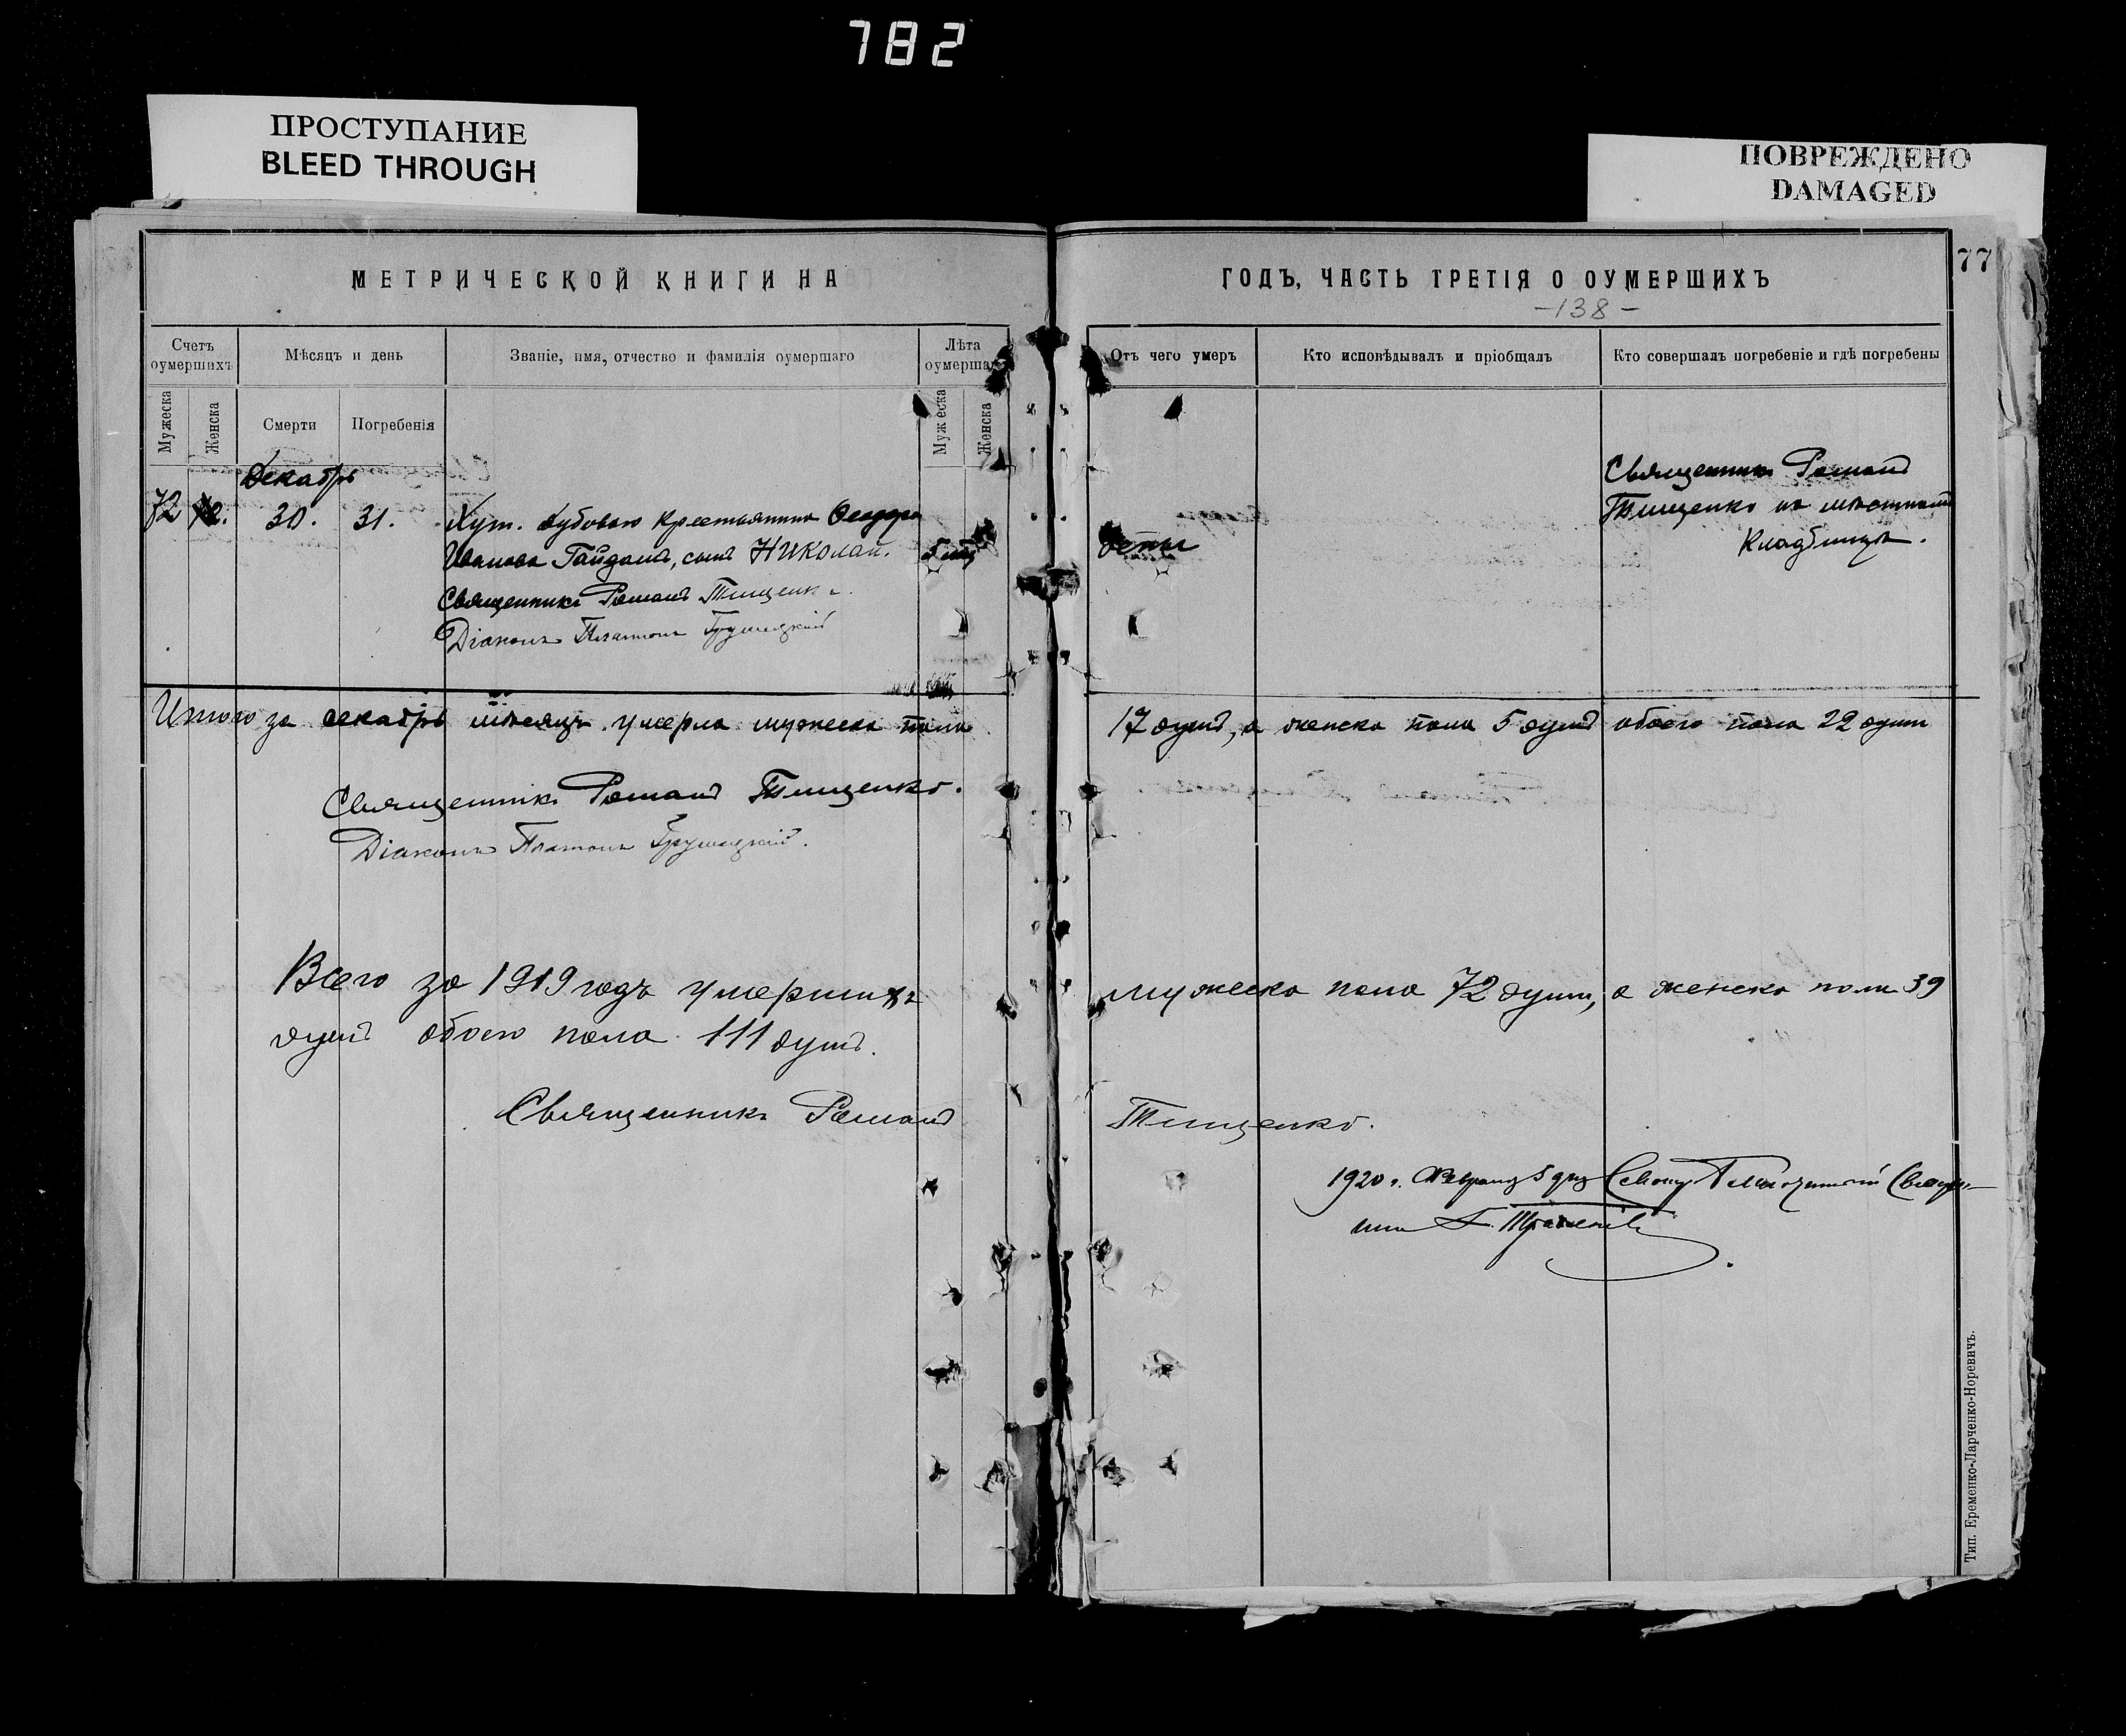 782
ПРОСТУПАНИЕ
BLEED THROUGH
ПОВРЕЖДЕНО
DAMAGED
МЕТРИЧЕСКОЙ КНИГИ НА
ГОДЪ, ЧАСТЬ ТРЕТІЯ О ОУМЕРШИХЪ
77
-138-
Счетъ оумершихъ
Мѣсяцъ и день
Званіе, имя, отчество и фамилія оумершаго
Лѣта оумерша
Отъ чего умеръ
Кто исповѣдывалъ и пріобщалъ
Кто совершалъ погребеніе и гдѣ погребены
Мужеска
Женска
Смерти
Погребенія
Мужеска
Женска
Декабрь
72
30.
31.
Хут. Дубоваго крестьянина Ѳеодора
Иванова Гайдаша, сынъ Николай.
Священникъ Романъ Тищенко
Діаконъ Платонъ Грушецкій
Священникъ Романъ
Тищенко на мѣстномъ
кладбищѣ.
Итого за декабрь мѣсяцъ умерло мужеска пола
17 душъ, а женска пола 5 душъ обоего пола 22 души
Священникъ Романъ Тищенко.
Діаконъ Платонъ Грушецкій.
Всего за 1919 годъ умершихъ
мужеска пола 72 души, а женска пола 39
душъ обоего пола 111 душъ.
Священникъ Романъ
Тищенко.
1920 г.
Тип. Еременко-Ларченко-Норевичъ.